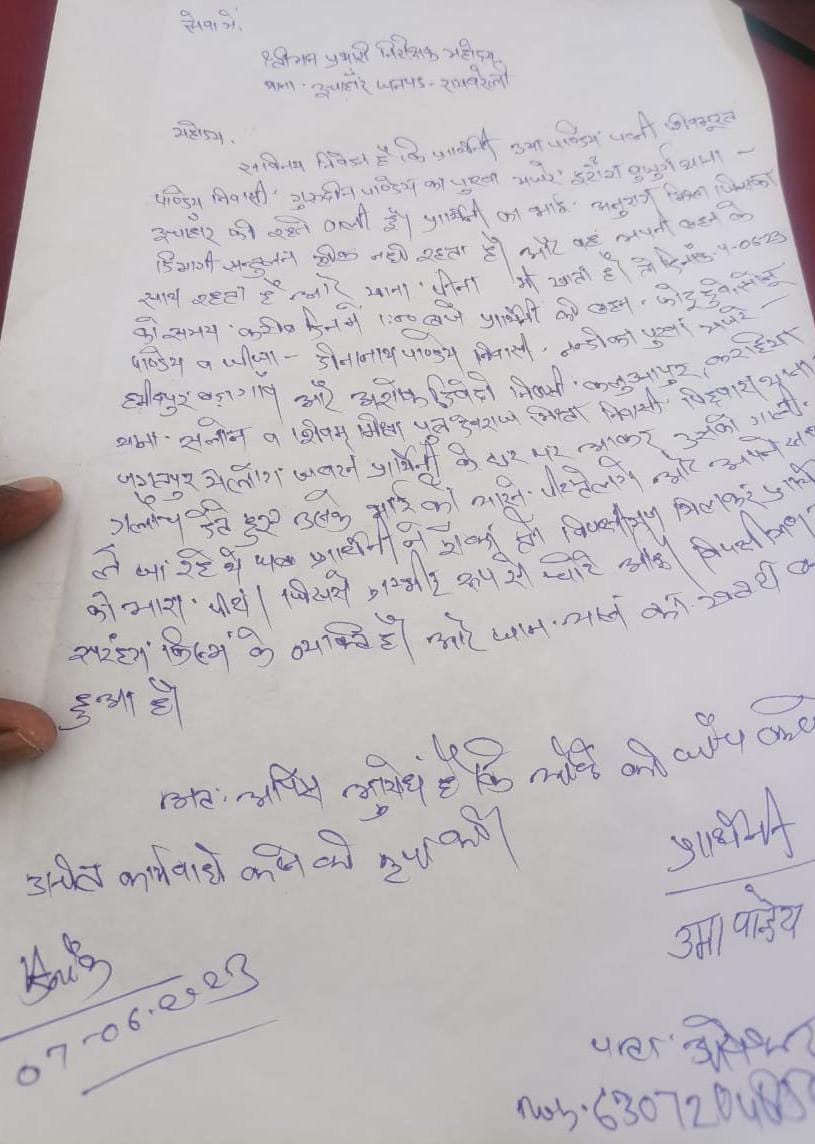 सेवा में,
श्रीमान प्रभारी निरीक्षक महोदय,
थाना - ऊचाहार जनपद - रायबरेली
महोदय,
सविनय निवेदन है कि प्रार्थिनी उमा पाण्डेय पत्नी शिवमूरत
पाण्डेय निवासी गुरुदीन पाण्डेय का पुरवा मजरे थाना -
ऊचाहार की रहने वाली हूँ। प्रार्थिनी का भाई अनुराग मिश्रा जिसका
दिमागी सन्तुलन ठीक नही रहता है। और वह अपनी बहन के
साथ रहता है और खाना पीना भी खाता है। तो दिनांक 4-06-23
को समय करीब दिन में 1:00 बजे प्रार्थिनी की बहन
पाण्डेय व जीजा - दीनानाथ पाण्डेय निवासी - नन्दी का पुरवा मजरे -
हमीदपुर बड़ागाँव और अशोक द्विवेदी निवासी करहिया
थाना - सलोन व शिवम मिश्रा पुत्र देवराज मिश्रा निवासी थाना
जगतपुर ये लोग जबरन प्रार्थिनी के घर पर आकर उसको गाली
गलौज देते हुए उसके भाई को मारने पीटने लगे और अपने साथ
ले जा रहे थे जब प्रार्थिनी ने रोका तो विपक्षीगण मिलकर
को मारा पीटा। जिससे गम्भीर रूप से चोटे आई। विपक्षीगण
सरहंग किस्म के व्यक्ति है। और जान माल का खतरा
हुआ है।
अतः आपसे अनुरोध है कि मौके की जाँच करके
उचित कार्यवाही करने की कृपा करें।
प्रार्थिनी
उमा पाण्डेय
दिनांक
07-06-2023
पता
Mob. 6307204